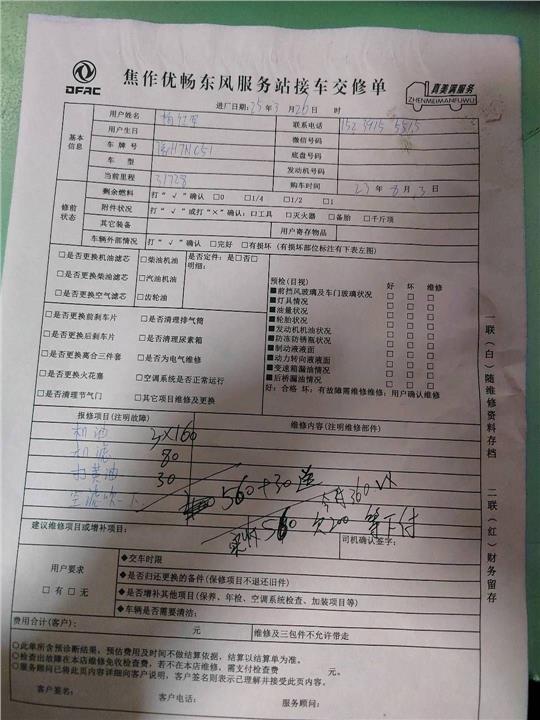 DFAC
焦作优畅东风服务站接车交修单
真美满服务
ZHENMEIMANFUWU
进厂日期:25年3月26日 时
基本信息
用户姓名
联系电话
用户生日
微信号码
车牌号
底盘号码
车型
发动机号码
当前里程 31728
购车时间 23年8月3日
修前状态
剩余燃料 打“√”确认 □0 □1/4 □1/2 □1
附件状况 打“√”或打“×”确认:□工具 □灭火器 □备胎 □千斤顶
其它装备
用户寄存物品
车辆外部情况 打“√”确认 □完好 □有损坏 (有损坏部位标注有下表左图)
□是否更换机油滤芯 □柴油机油
□是否更换柴油滤芯 □汽油机油
□是否更换空气滤芯 □齿轮油
是否定件:是□否□
明细:
□是否更换前刹车片 □是否清理排气筒
□是否更换后刹车片 □是否清理尿素箱
□是否更换离合三件套 □是否为电气维修
□是否更换火花塞 □空调系统是否正常运行
□是否清理节气门 □其它项目维修及更换
预检(目视) 好 坏 维修
■前挡风玻璃及车门玻璃状况 □ □ □
■灯具情况 □ □ □
■油量状况 □ □ □
■轮胎状况 □ □ □
■发动机机油状况 □ □ □
■防冻防锈瓶状况 □ □ □
■制动液液面 □ □ □
■动力转向液液面 □ □ □
■变速箱漏油情况 □ □ □
■后桥漏油情况 □ □ □
好:合格 坏:有故障需维修维修:用户确认维修
报修项目(注明故障)
维修内容(注明维修部件)
机油 3×160
机滤 80
打黄油 30
空滤吹一下
560+30
实付 560 欠200 等下付
建议维修项目或增补项目:
司机确认签字:
用户要求
□有 □无
◆交车时限
◆是否归还更换的备件(保修项目不退还旧件)
◆是否增补其他项目(保养、年检、空调系统检查、加装项目等)
◆车辆是否需要清洁:
费用合计(客户): 元
维修及三包件不允许带走
◎此单所含预诊断结果,预估费用及时间不做结算依据,结算以结算单为准。
◎检查出故障在本店维修免收检查费,若不在本店维修,需支付检查费 元。
◎服务顾问已将此页内容详细向客户说明,客户签名则表示已理解并接受此页内容。
客户签名: 客户电话: 服务顾问:
一联(白)随维修资料存档
二联(红)财务留存